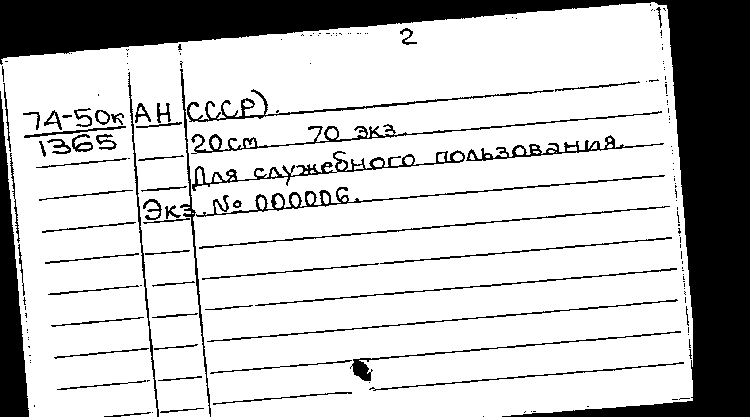 2
74-50к АН СССР).
1365 20 см. 70 экз.
Для служебного пользования.
Экз. № 000006.